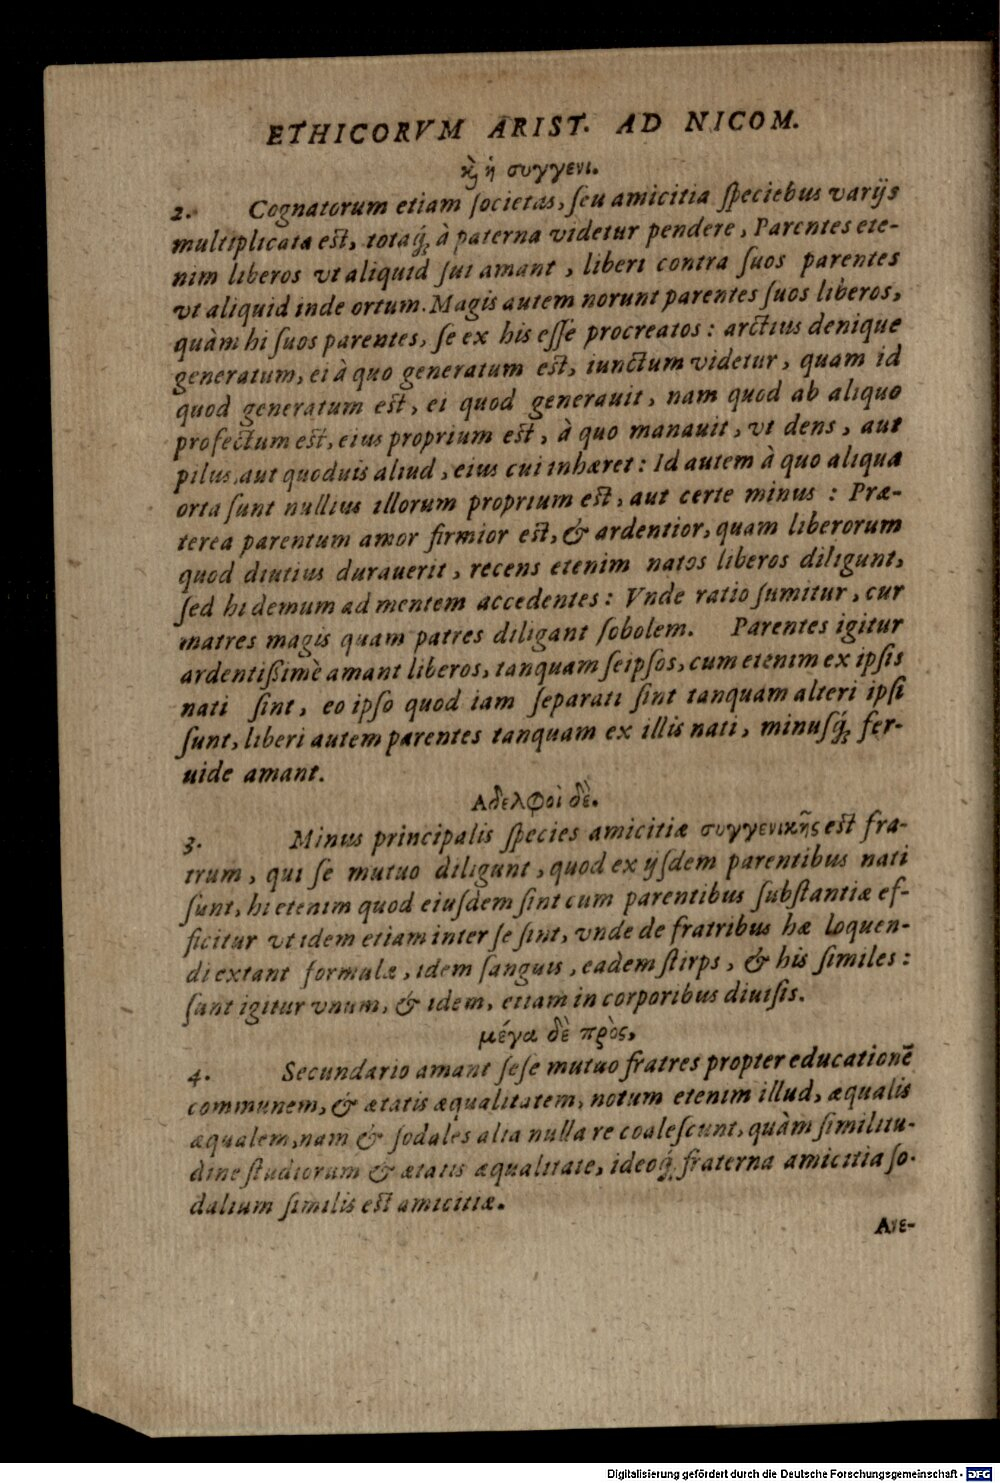 ETHICORVM ARIST. AD NICOM.
κ̀ ἡ συγγενι.
2. Cognatorum etiam ſocietas, ſeu amicitia ſpeciebus varijs
multiplicata est, totaq́; à paterna videtur pendere, Parentes ete-
nim liberos vt aliquid ſui amant, liberi contra ſuos parentes
vt aliquid inde ortum. Magis autem norunt parentes ſuos liberos,
quàm hi ſuos parentes, ſe ex his eſſe procreatos: arctius denique
generatum, ei à quo generatum est, iunctum videtur, quam id
quod generatum est, ei quod generauit, nam quod ab aliquo
profectum est, eius proprium est, à quo manauit, vt dens, aut
pilus, aut quoduis aliud, eius cui inhæret: Id autem à quo aliqua
orta ſunt nullius illorum proprium est, aut certe minus: Præ-
terea parentum amor firmior est, & ardentior, quam liberorum
quod diutius durauerit, recens etenim natos liberos diligunt,
ſed hi demum ad mentem accedentes: Vnde ratio ſumitur, cur
matres magis quam patres diligant ſobolem. Parentes igitur
ardentißimè amant liberos, tanquam ſeipſos, cum etenim ex ipſis
nati ſint, eo ipſo quod iam ſeparati ſint tanquam alteri ipſi
ſunt, liberi autem parentes tanquam ex illis nati, minuſq́; fer-
uide amant.
Αδελφοὶ δὲ.
3. Minus principalis ſpecies amicitiæ συγγενικῆς est fra-
trum, qui ſe mutuo diligunt, quod ex ijſdem parentibus nati
ſunt, hi etenim quod eiuſdem ſint cum parentibus ſubſtantiæ ef-
ficitur vt idem etiam inter ſe ſint, vnde de fratribus hæ loquen-
di extant formulæ, idem ſanguis, eadem ſtirps, & his ſimiles:
ſunt igitur vnum, & idem, etiam in corporibus diuiſis.
μέγα δὲ πρὸς,
4. Secundario amant ſeſe mutuo fratres propter educationē
communem, & ætatis æqualitatem, notum etenim illud, æqualis
æqualem, nam & ſodales alia nulla re coaleſcunt, quàm ſimilitu-
dine ſtudiorum & ætatis æqualitate, ideoq́; fraterna amicitia ſo-
dalium ſimilis est amicitiæ.
Digitalisierung gefördert durch die Deutsche Forschungsgemeinschaft - DFG